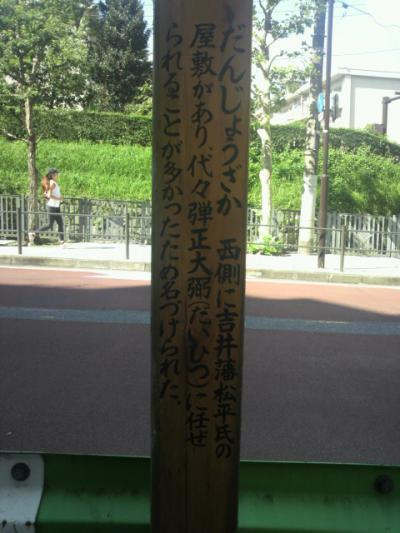 だんじょうざか 西側に吉井藩松平氏の
屋敷があり、代々弾正大弼(だいひつ)に任ぜ
られることが多かったため名づけられた。